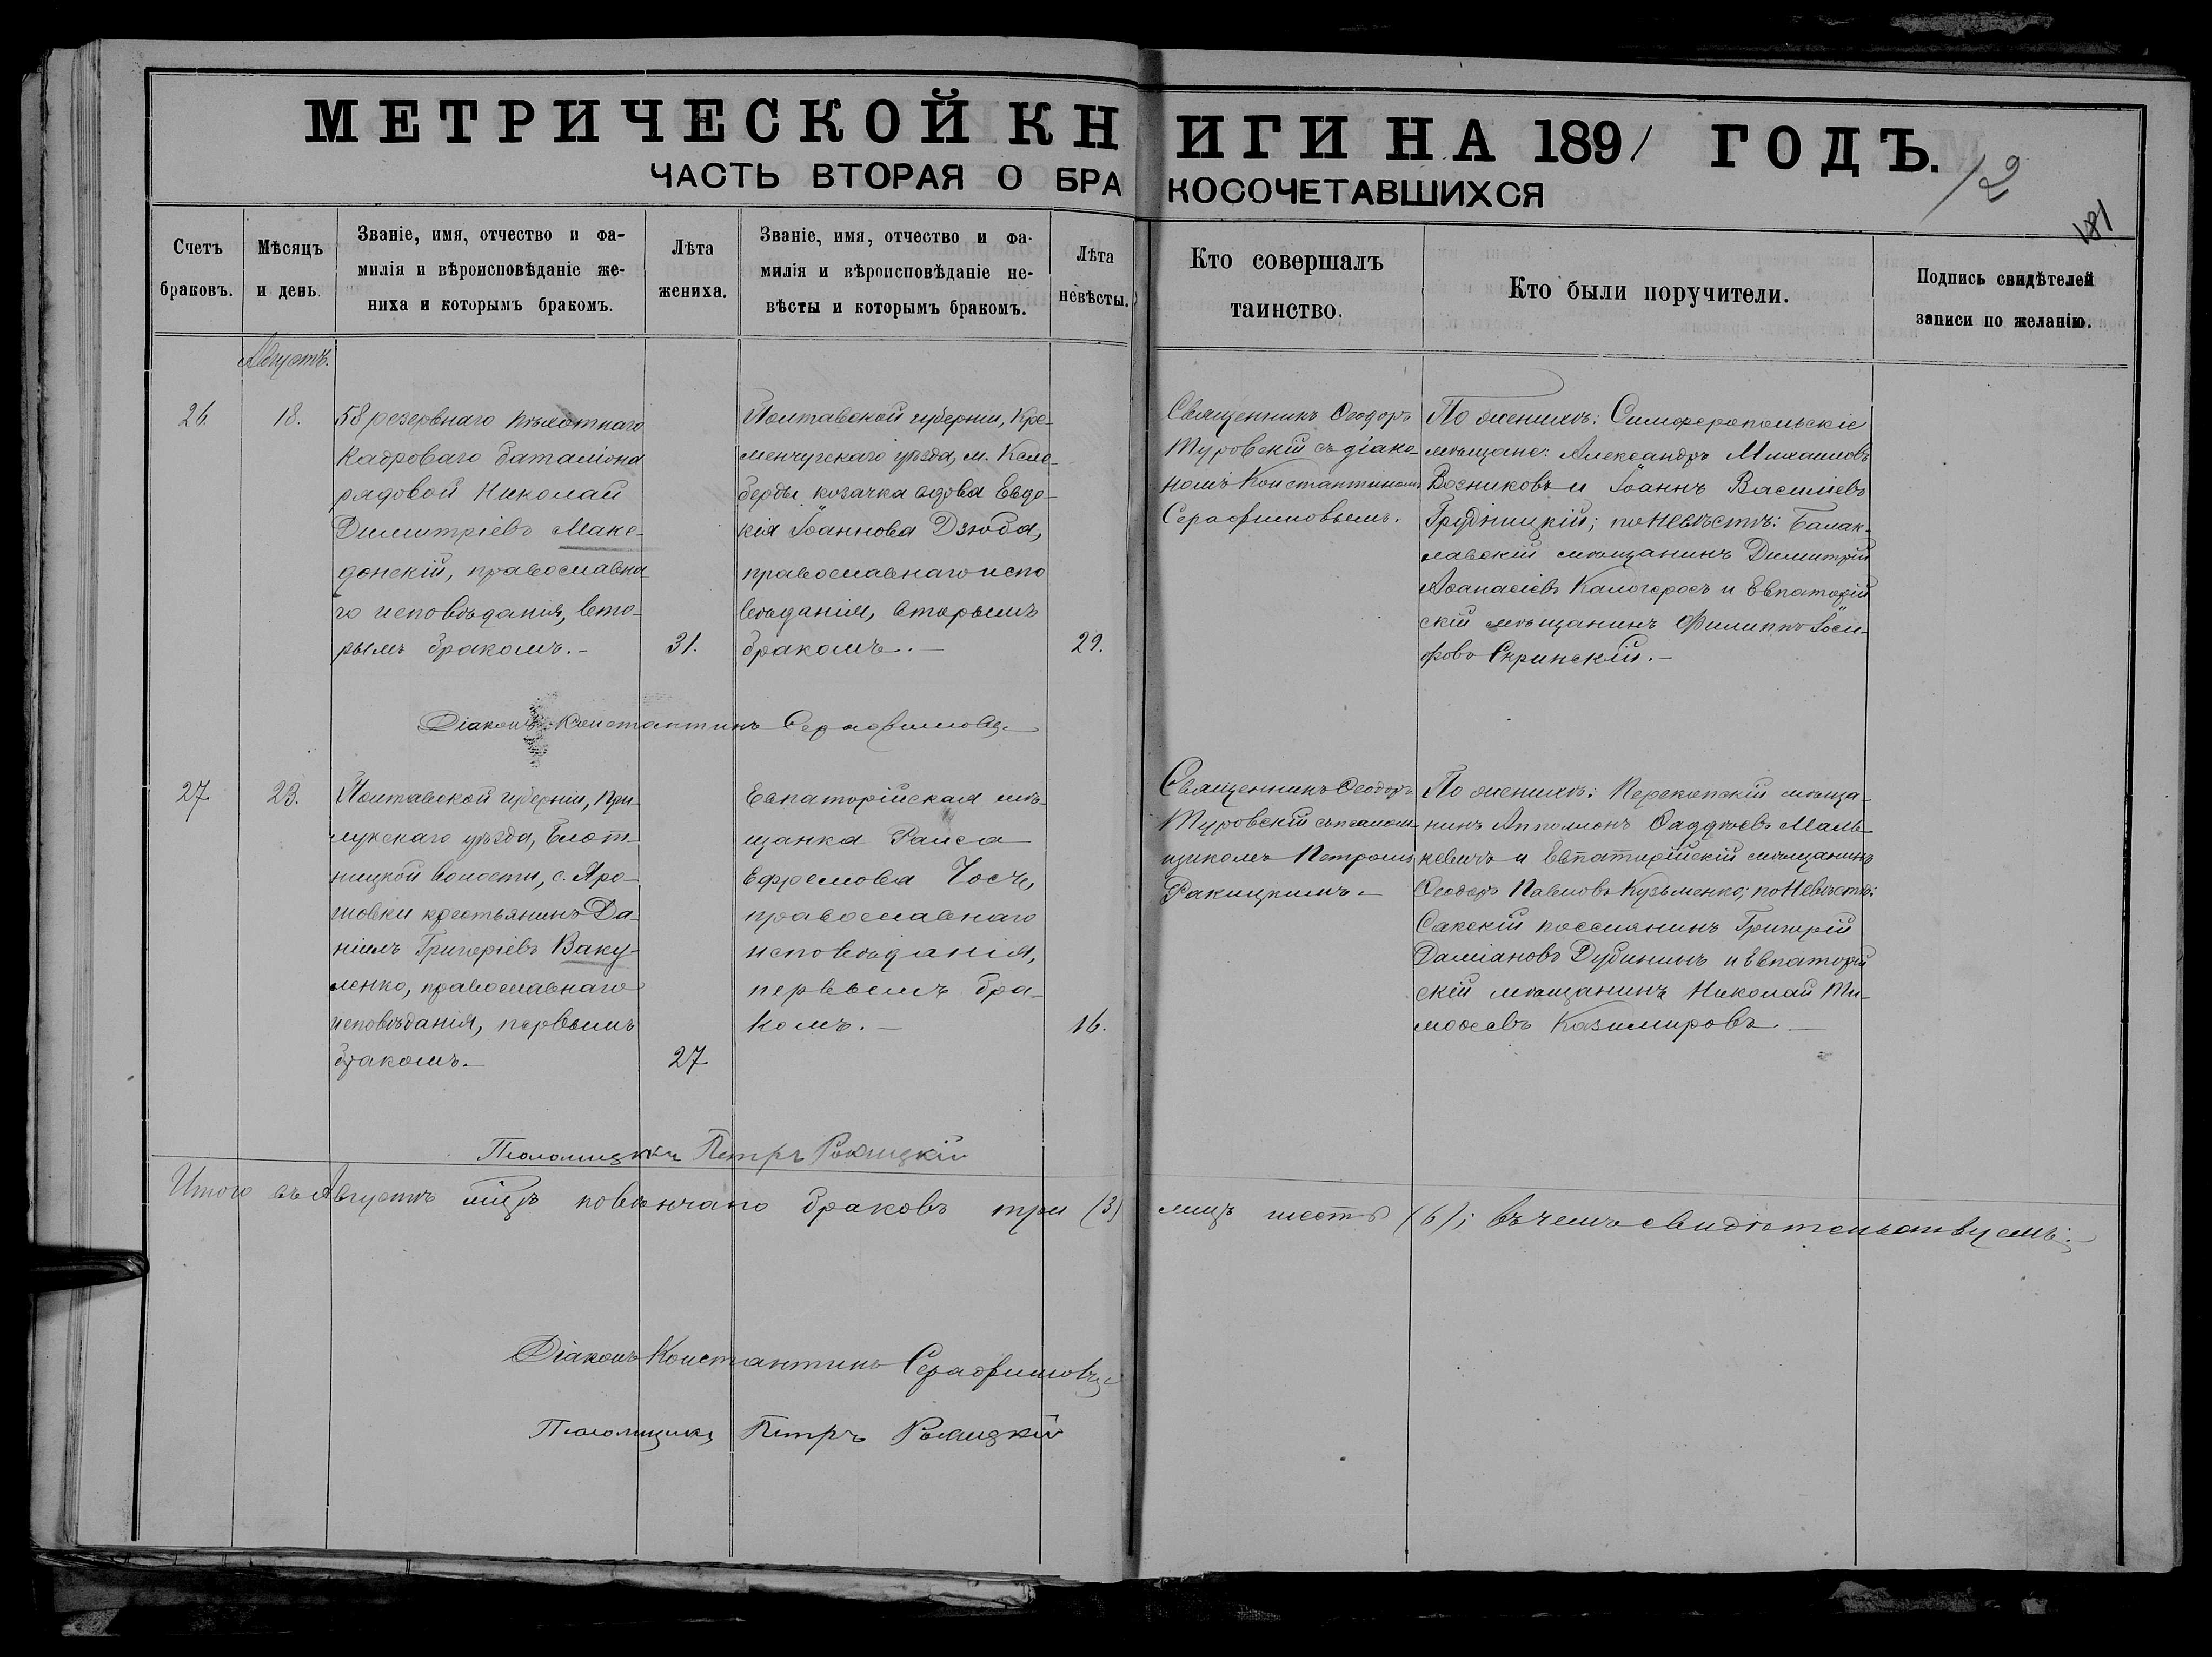 МЕТРИЧЕСКОЙ КНИГИ НА 1891 ГОДЪ.
ЧАСТЬ ВТОРАЯ О БРАКОСОЧЕТАВШИХСЯ
12
181
Счетъ
браковъ.
Мѣсяцъ
и день.
Званіе, имя, отчество и фа-
милія и вѣроисповѣданіе же-
ниха и которымъ бракомъ.
Лѣта
жениха.
Званіе, имя, отчество и фа-
милія и вѣроисповѣданіе не-
вѣсты и которымъ бракомъ.
Лѣта
невѣсты.
Кто совершалъ
таинство.
Кто были поручители.
Подпись свидѣтелей
записи по желанію.
Августъ.
26
18.
58 резервнаго пѣхотнаго
кадроваго баталіона
рядовой Николай
Димитріевъ Маке-
донскій, православна
го исповѣданія, вто-
рымъ бракомъ.-
31.
Полтавской губерніи, Кре-
менчугскаго уѣзда, м. Келе-
берды козачка вдова Евдо-
кія Іоаннова Дзюба,
православнаго испо
вѣданія, вторымъ
бракомъ.-
29.
Священникъ Ѳеодоръ
Туровскій съ діако-
номъ Константиномъ
Серафимовымъ.
По женихѣ: Симферопольскіе
мѣщане: Александръ Михаиловъ
Возниковъ и Іоаннъ Василіевъ
Грудницкій; по невѣстѣ: Балак-
лавскій мѣщанинъ Димитрій
Аѳанасіевъ Калогеросъ и Евпаторій
скій мѣщанинъ Филиппъ Іоси-
фовъ Скринскій.-
Діаконъ Константинъ Серафимовъ
27
23.
Полтавской губерніи, При-
лукскаго уѣзда, Блот-
ницкой волости, с. Яро-
шовки крестьянинъ Да-
ніилъ Григоріевъ Ваку-
ленко, православнаго
исповѣданія, первымъ
бракомъ.-
27
Евпаторійская мѣ-
щанка Раиса
Ефремова
православнаго
исповѣданія,
первымъ бра-
комъ.-
16.
Священникъ Ѳеодоръ
Туровскій съ псалом-
щикомъ Петромъ
Ракицкимъ.-
По женихѣ: Перекопскій мѣща-
нинъ Апполлонъ Ѳаддѣевъ Маль-
кевичъ и Евпаторійскій мѣщанинъ
Ѳеодоръ Павловъ Кузьменко; по невѣстѣ:
Сакскій поселянинъ Григорій
Даміановъ Дубининъ и Евпаторій
скій мѣщанинъ Николай Ти-
моѳеевъ Казимировъ.-
Псаломщикъ Петръ Ракицкій
Итого въ Августѣ мѣсяцѣ повѣнчано браковъ три (3) лицъ шесть (6); въ чемъ свидѣтельствуемъ:
Діаконъ Константинъ Серафимовъ
Псаломщикъ Петръ Ракицкій